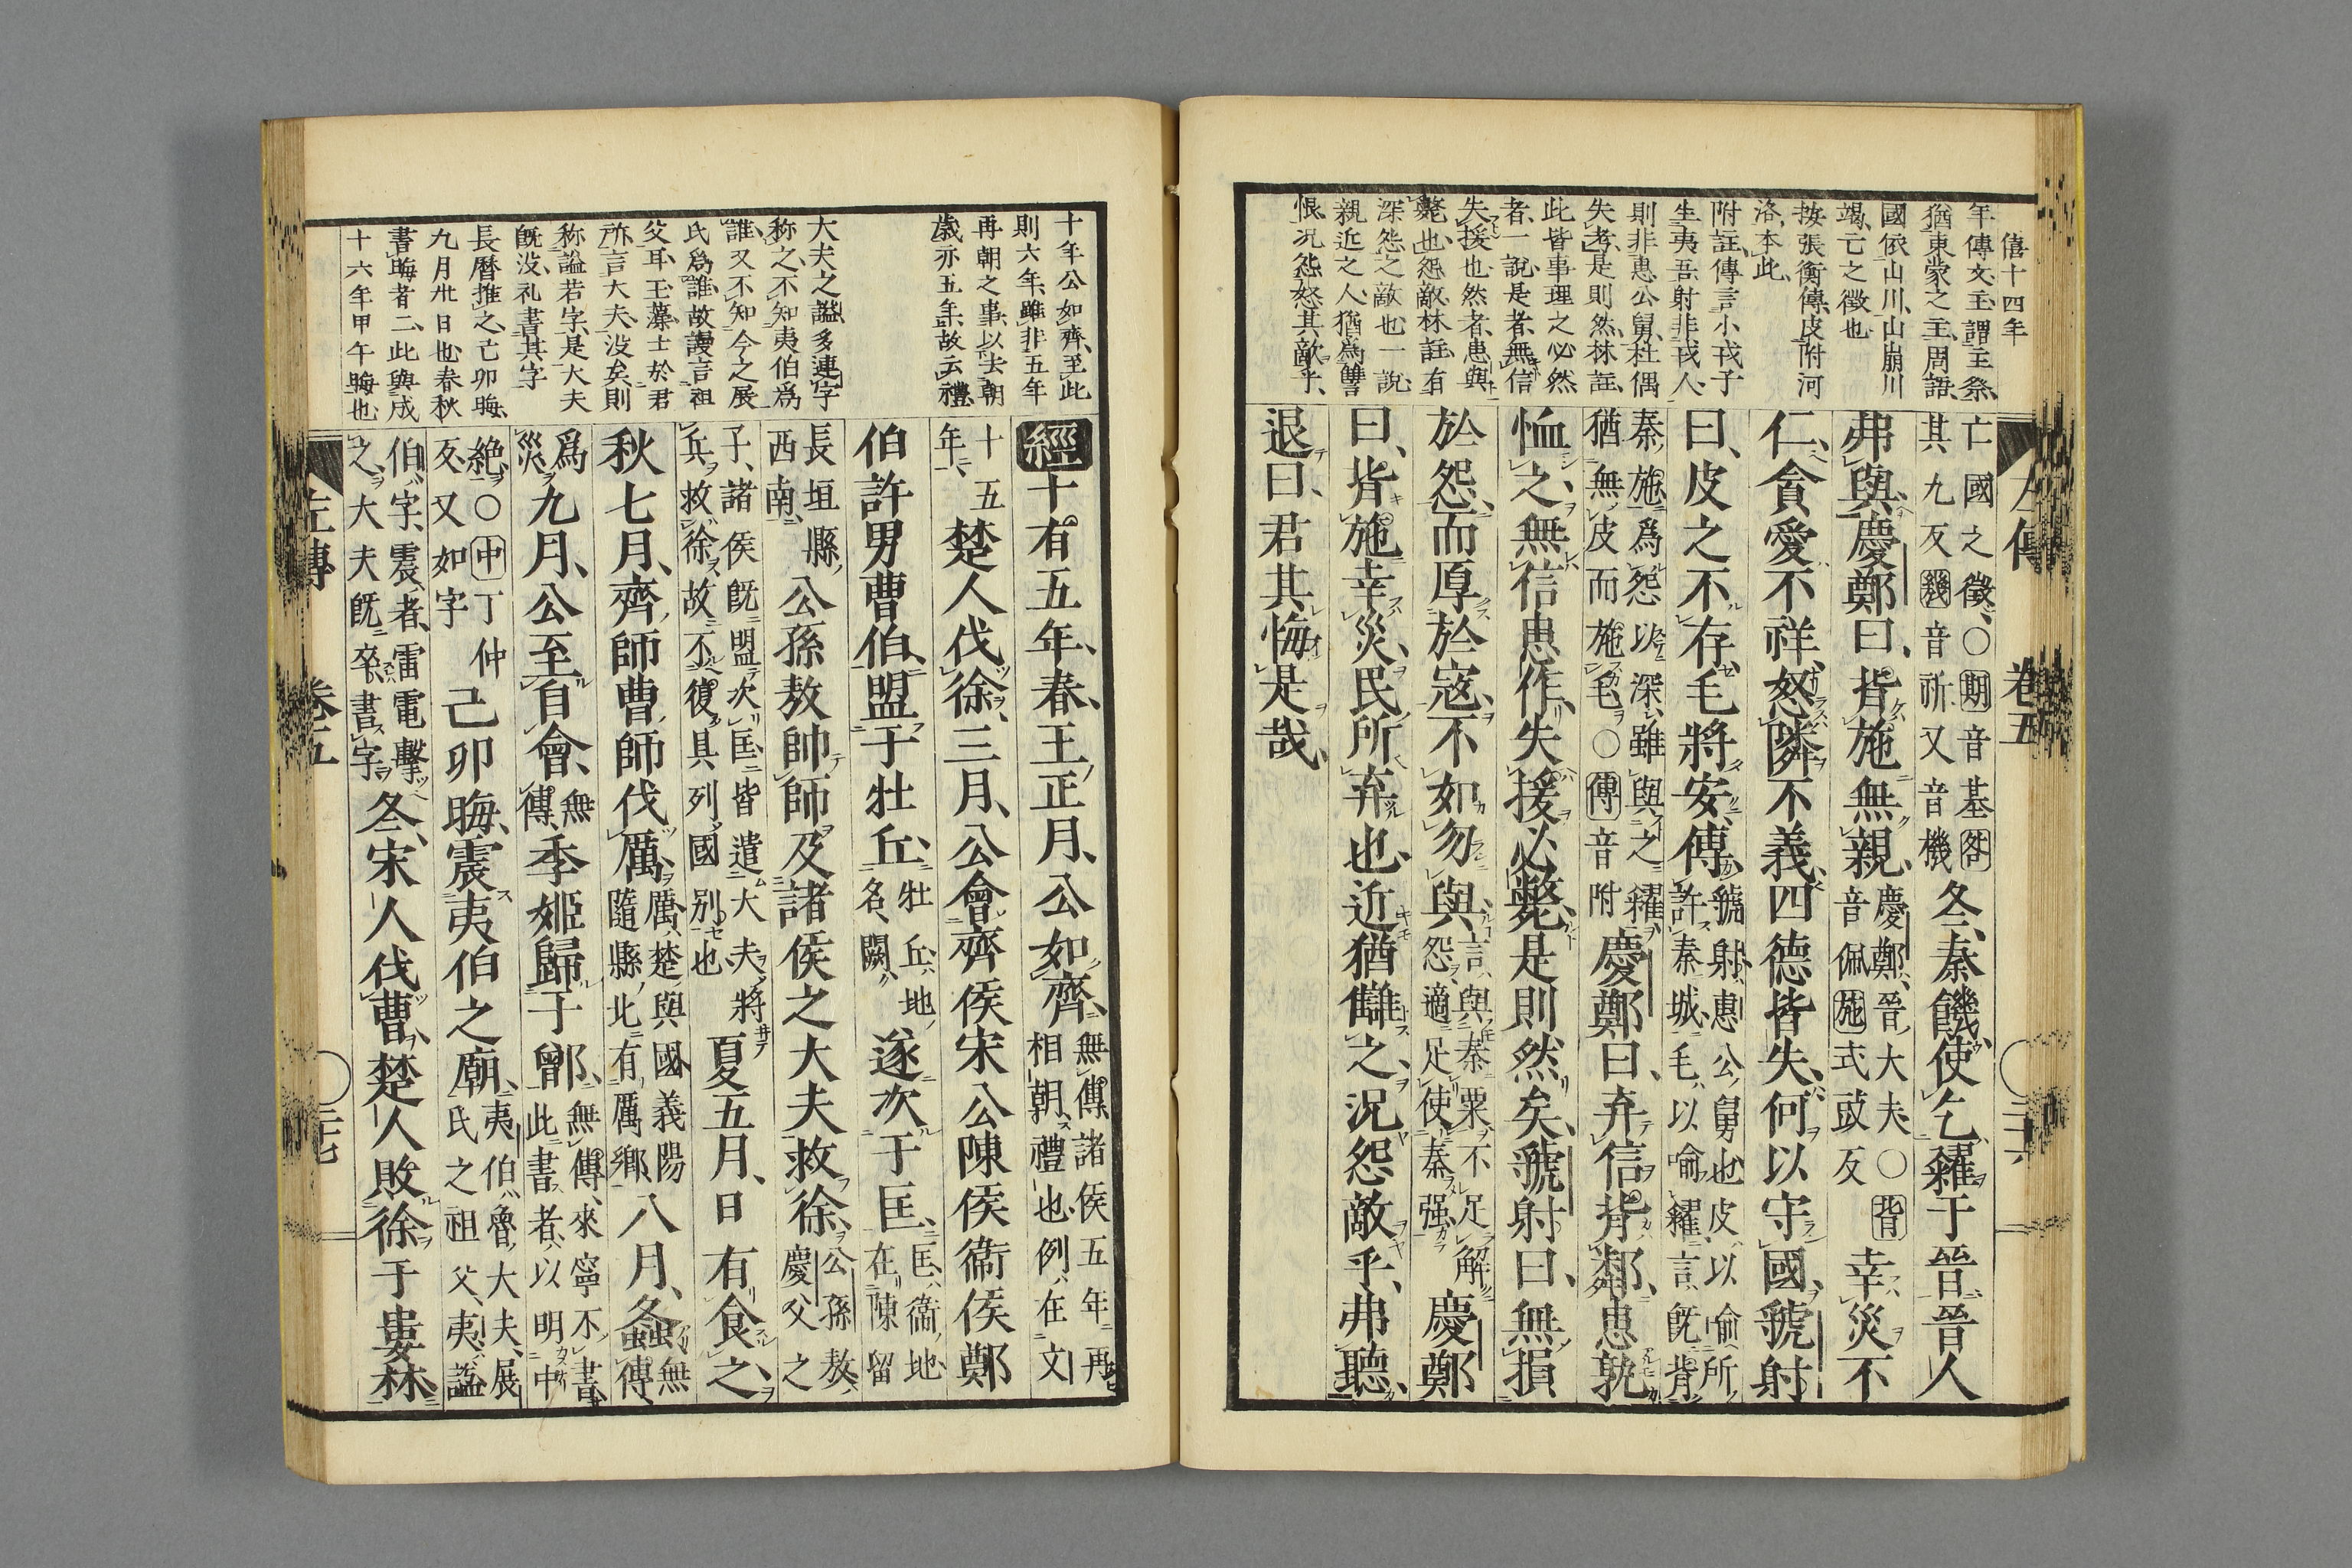 僖十四年
年傳文主謂主祭
猶東蒙之主周語
國依山川山崩川
竭亡之徵也
按張衡傳皮附河
洛本此
附註傳言小戎子
生夷吾射非戎人
則非惠公舅杜偶
失考是則然林註
此皆事理之必然
者一說是者無信
失援也然者患與
斃也怨敵林註有
深怨之敵也一說
親近之人猶為讐
恨况怨怒其敵乎
左傳 卷五 三六
亡國之徵、〇期音基咎
其九反幾音祈又音機
冬、秦饑、使乞糴于晉、晉人
弗與、慶鄭曰、背施無親、
慶鄭、晉大夫、〇背
音佩施式豉反
幸災不
仁、貪愛不祥、怒隣不義、四德皆失、何以守國、虢射
曰、皮之不存、毛將安傅、
虢射、惠公舅也皮以喻所
許秦城、毛以喻糴、言既背
秦施、爲怨以深、雖與之糴
猶無皮而施毛〇傅音附
慶鄭曰、弃信背鄰、患孰
恤之、無信患作、失援必斃、是則然矣、虢射曰、無損
於怨、而厚於寇、不如勿與、
言、與秦粟不足解
怨、適足使秦强
慶鄭
曰、背施幸災、民所弃也、近猶讎之、况怨敵乎、弗聽、
退曰、君其悔是哉、
十年公如齊至此
則六年雖非五年
再朝之事以去朝
歳亦五年故云禮
大夫之謚多連字
称之不知夷伯爲
誰又不知今之展
氏爲誰故謾言祖
父耳玉藻士於君
所言大夫没矣則
称謚若字是大夫
既没礼書其字
長曆推之己卯晦
九月卅日也春秋
書晦者二此與成
十六年甲午晦也
經十有五年、春、王正月、公如齊、
無傳諸侯五年再
相朝、禮也、例在文
十五
年、
楚人伐徐、三月、公會齊侯宋公陳侯衞侯鄭
伯許男曹伯、盟于牡丘、
牡丘、地
名、闕、
遂次于匡、
匡、衞地、
在陳留
長垣縣
西南、
公孫敖帥師及諸侯之大夫救徐、
公孫敖、
慶父之
子、諸侯既盟次匡、皆遣大夫、將
兵救徐、故不復具列國別也、
夏五月、日有食之、
秋七月、齊師曹師伐厲、
厲、楚與國義陽
隨縣北有厲鄉
八月、螽、
無
傳、
爲
災、
九月、公至自會、
無
傳、
季姬歸于鄫、
無傳、來寧不書
此書者、以明中
絶、〇中丁仲
反、又如字
己卯晦、震夷伯之廟、
夷伯、魯大夫、展
氏之祖父、夷謚
伯字、震者、雷電擊
之、大夫既卒、書字
冬、宋人伐曹、楚人敗徐于婁林、
左傳 卷五 三七